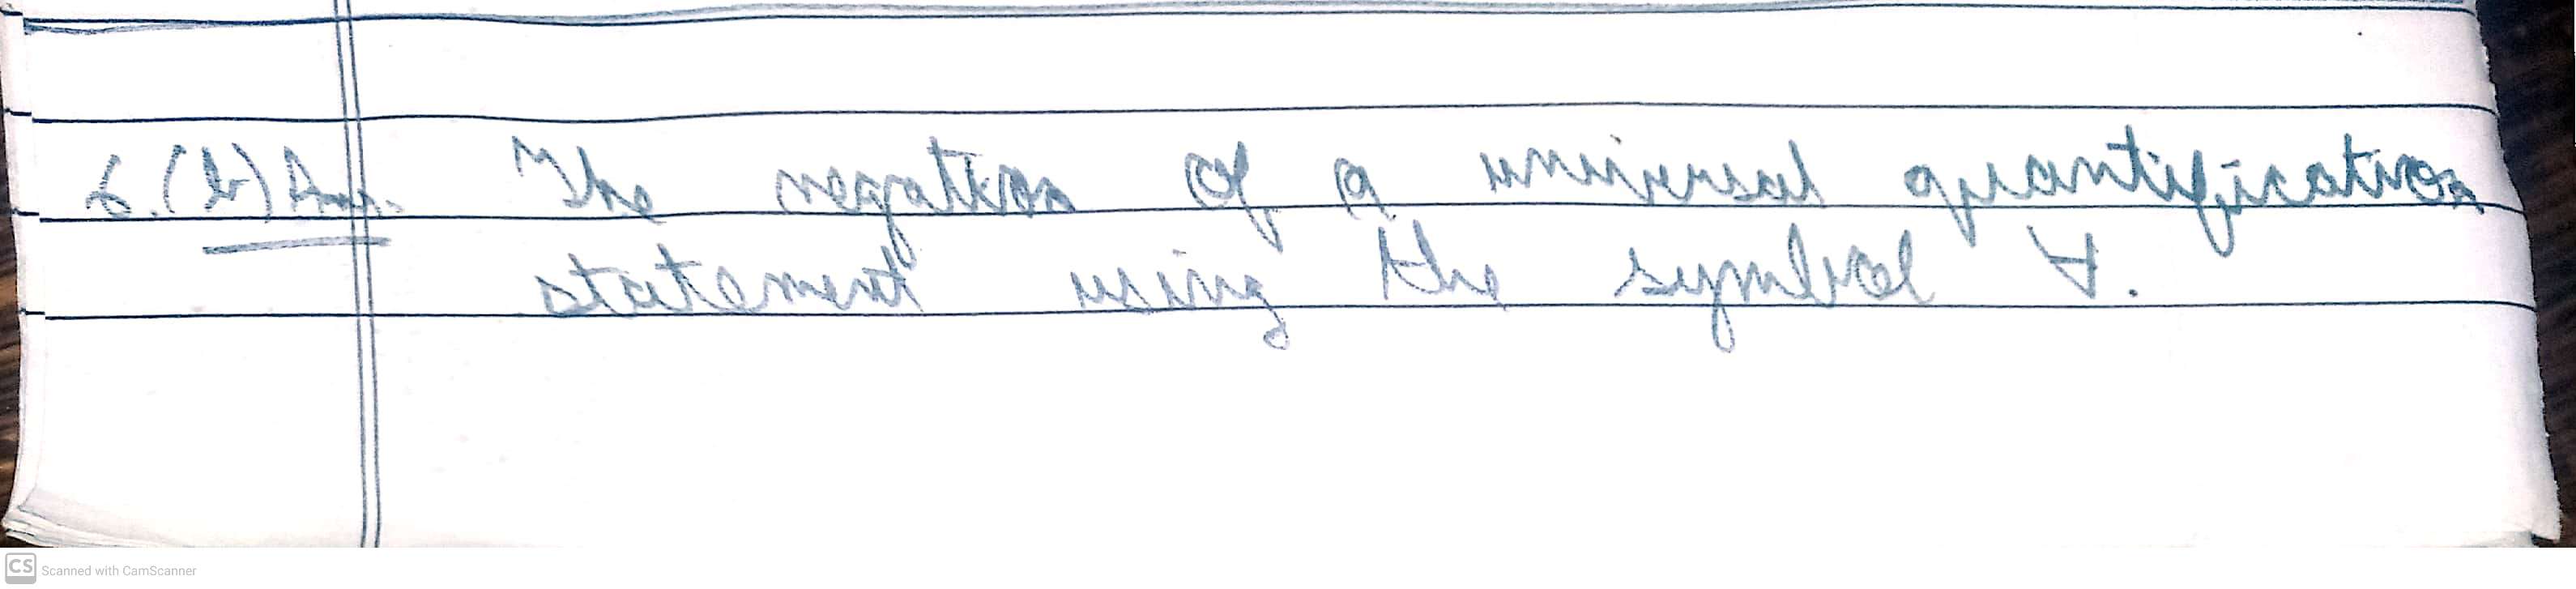 6.(b) Ans. The negation of a universal quantification
statement using the symbol ∀.
CS Scanned with CamScanner